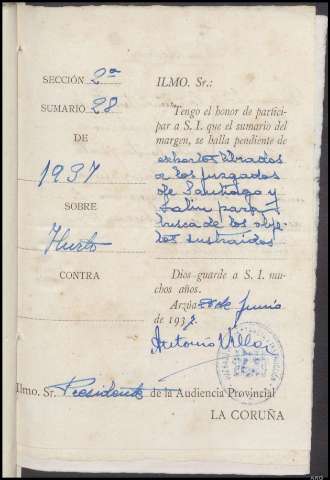 SECCIÓN 2ª
SUMARIO 28
DE
1937
SOBRE
Hurto
CONTRA
ILMO. Sr.:
Tengo el honor de partici-
par a S. I. que el sumario del
margen, se halla pendiente de
exhortos librados
a los juzgados
de Santiago y
Lalín para
busca de los obje-
tos sustraídos
Dios guarde a S. I. mu-
chos años.
Arzúa 28 de Junio
de 1937.
Antonio Villar
Ilmo. Sr. Presidente de la Audiencia Provincial
LA CORUÑA